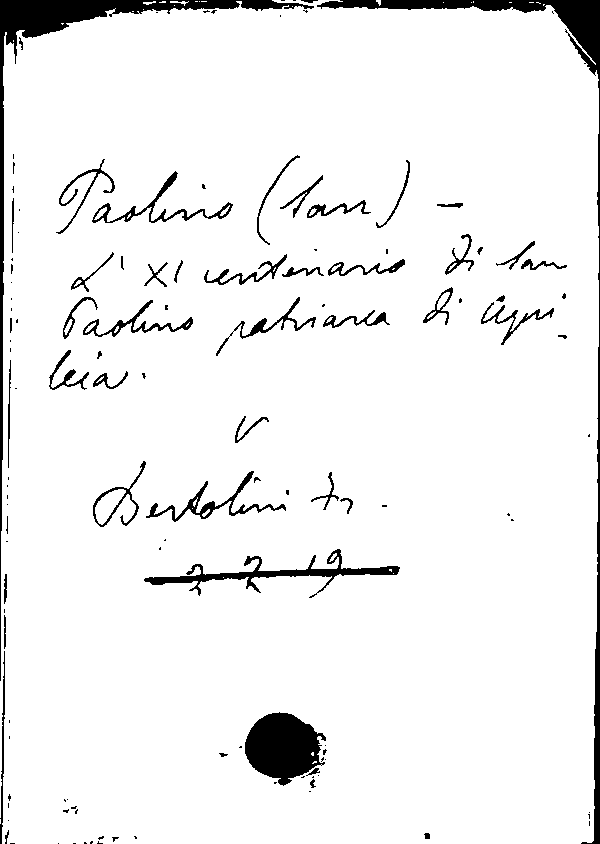 Paolino (San) -
L' XI centenario di San
Paolino patriarca di Aqui-
leia.
V
Bertolini Fr.
2 2 19